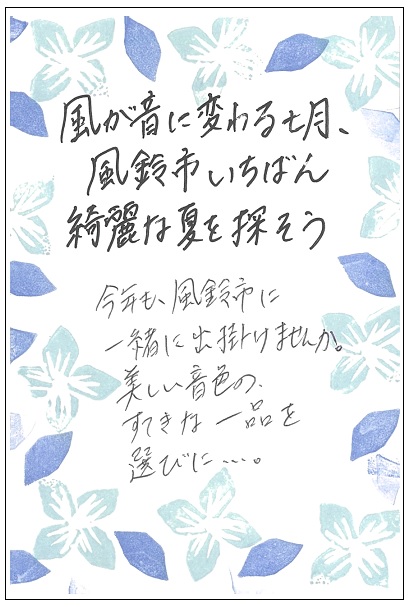 風が音に変わる七月、
風鈴市いちばん
綺麗な夏を探そう
今年も、風鈴市に
一緒に出掛けませんか。
美しい音色の、
すてきな一品を
選びに……。